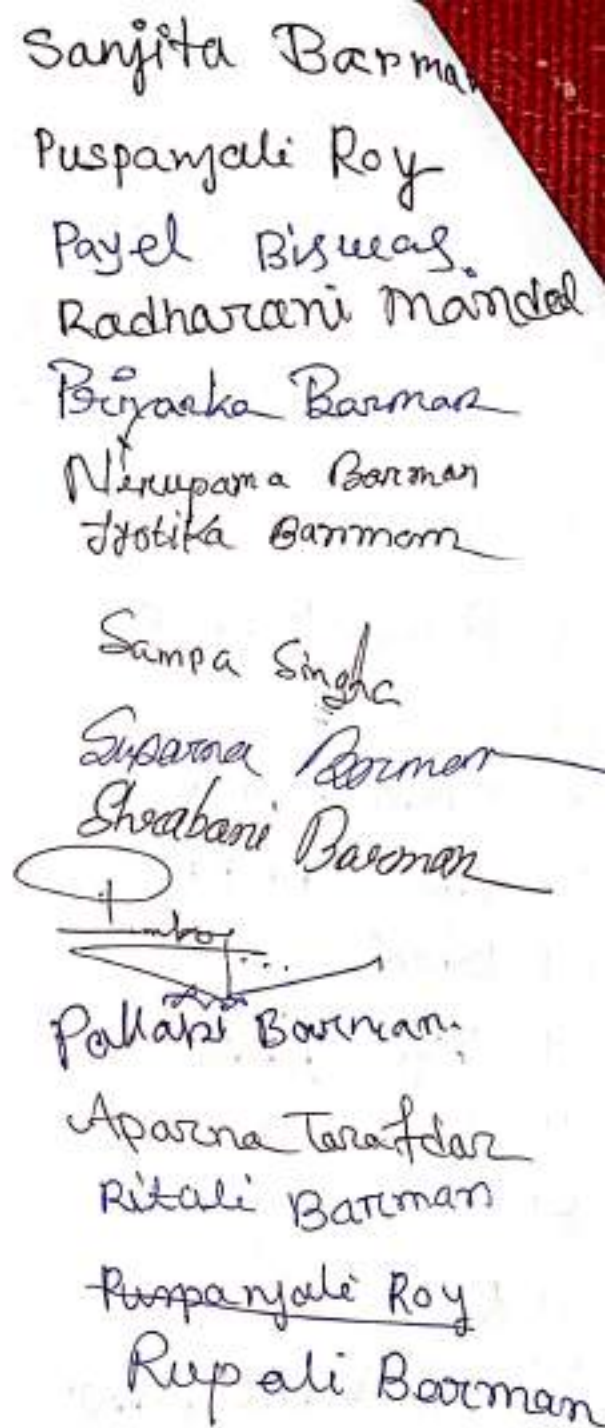 Sanjita Barman
Puspanjali Roy
Payel Biswas
Radharani Mandal
Priyanka Barman
Nirupama Barman
Jyotika Barman
Sampa Singha
Suparna Barman
Shrabani Barman
Pallabi Barman.
Aparna Tarafdar
Ritali Barman
Puspanjali Roy
Rupali Barman